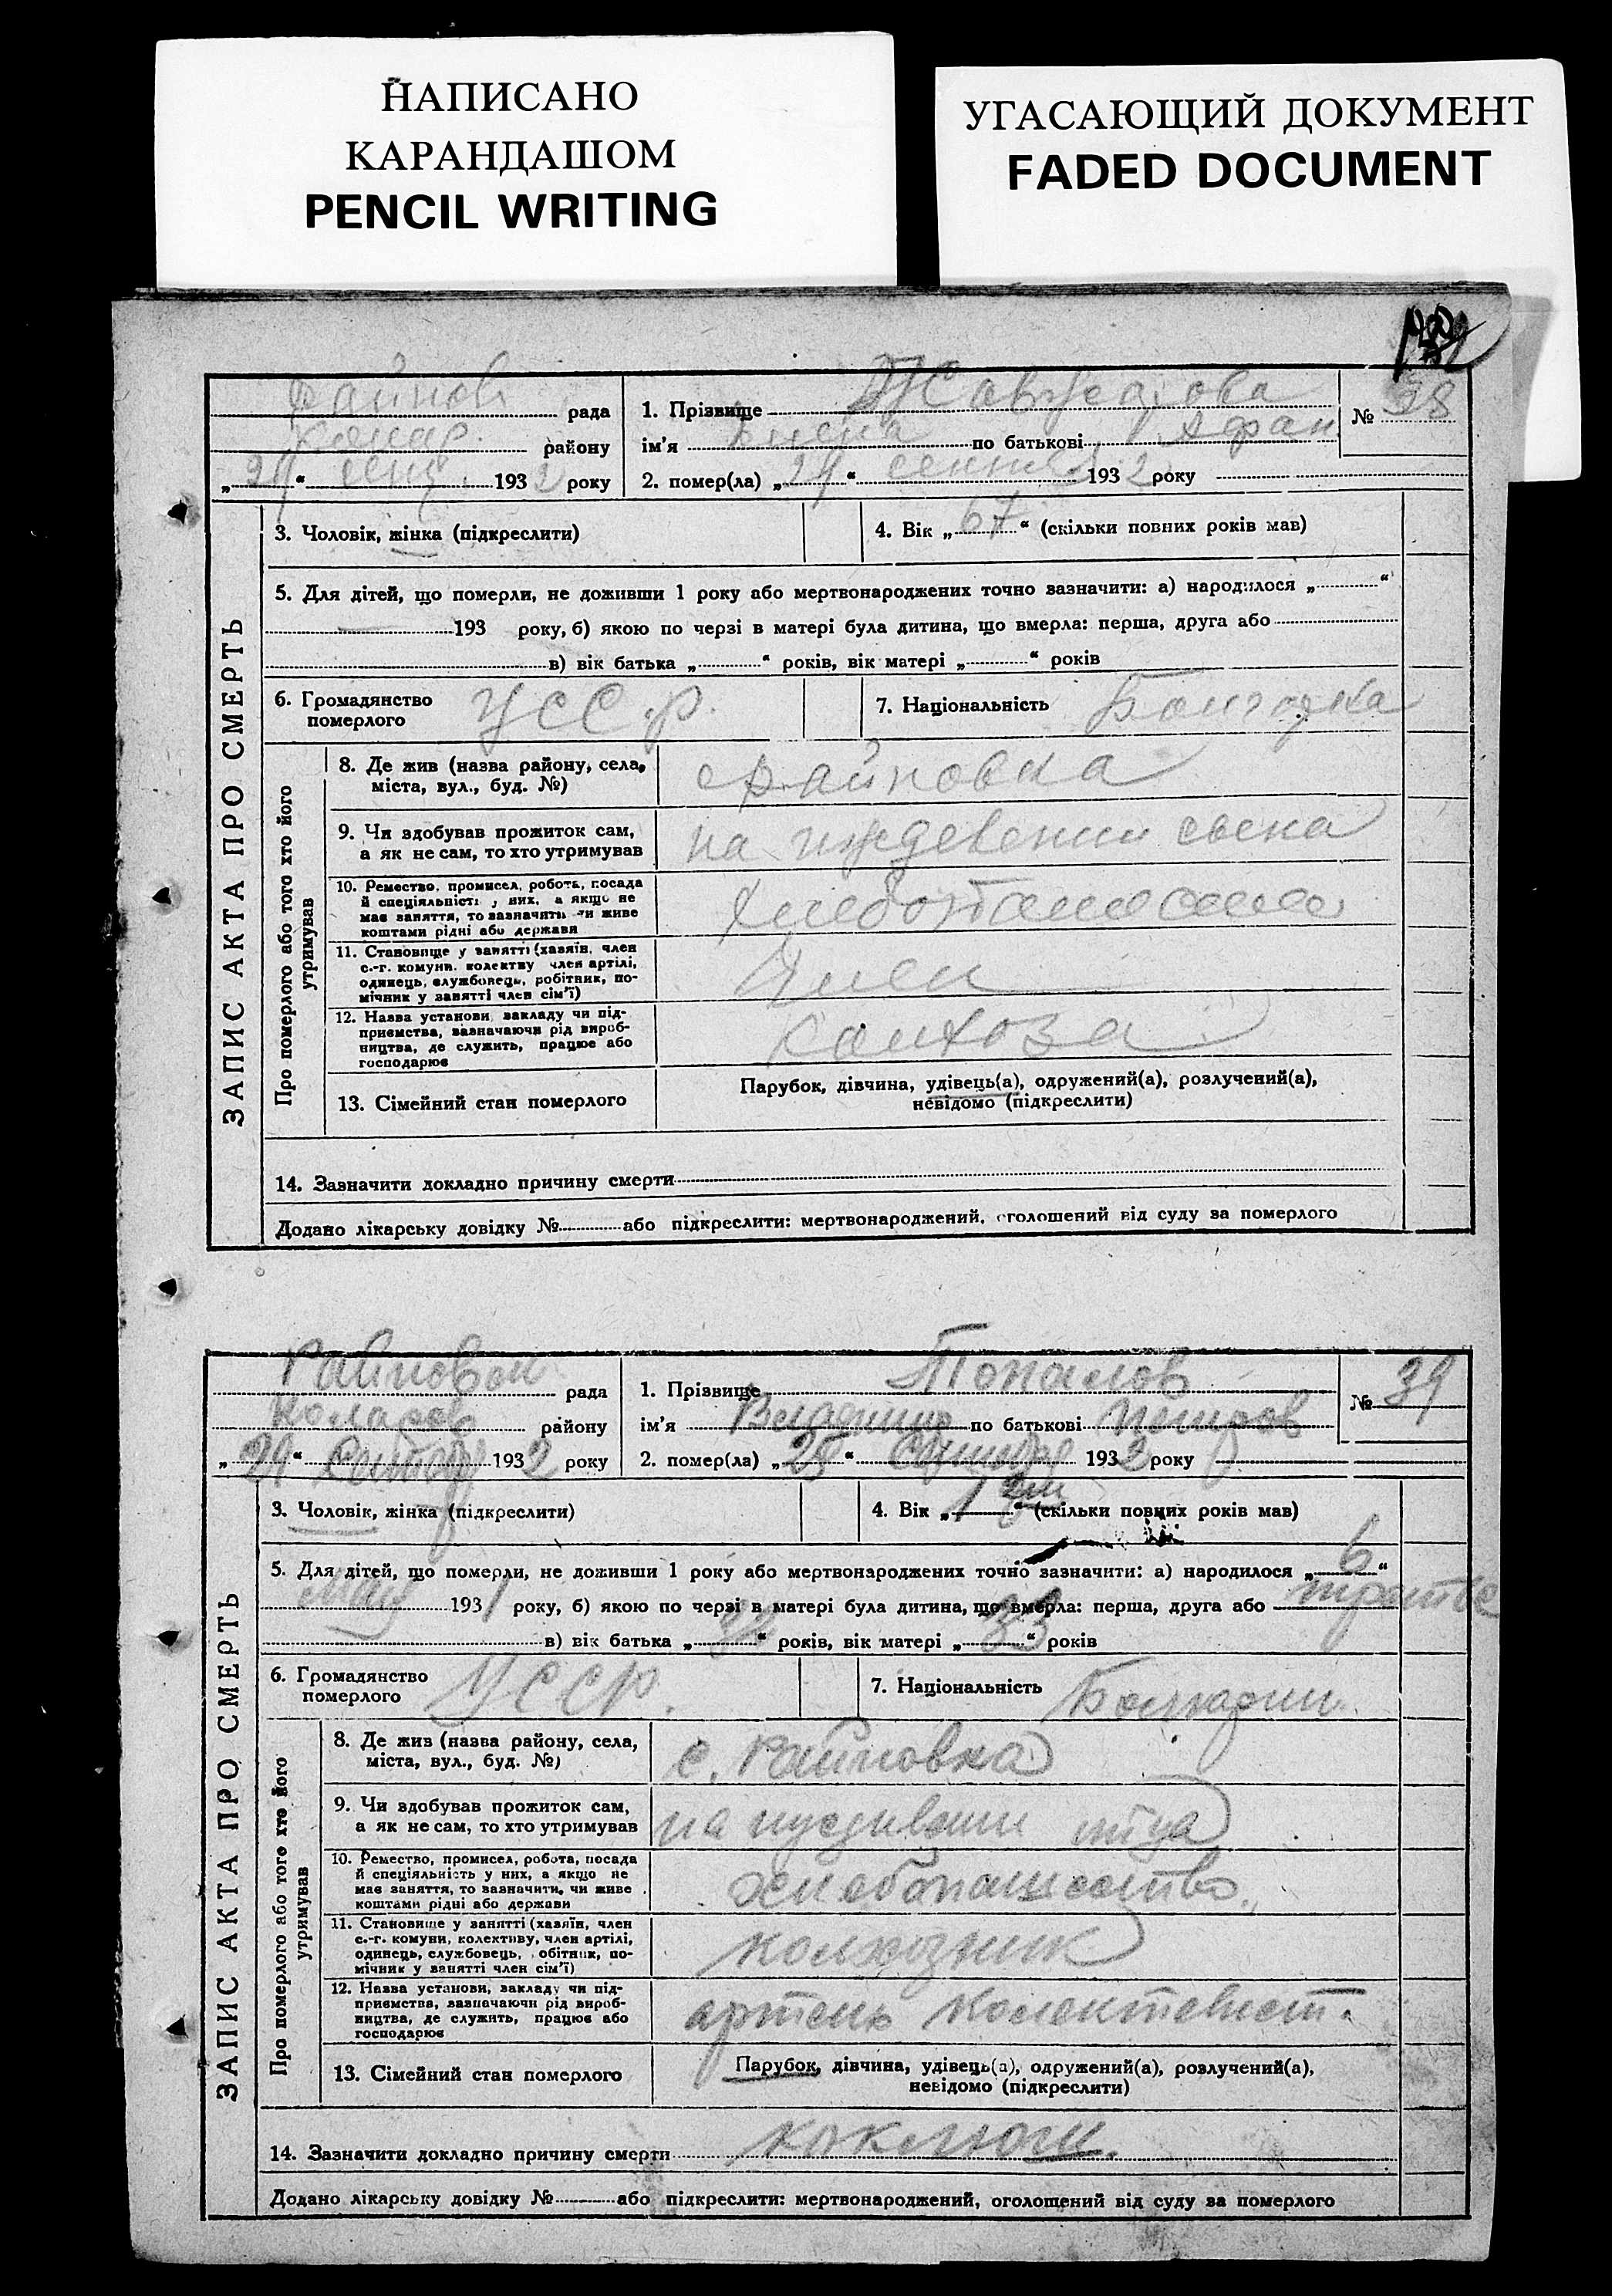 НАПИСАНО
КАРАНДАШОМ
PENCIL WRITING
УГАСАЮЩИЙ ДОКУМЕНТ
FADED DOCUMENT
рада
району
„24“ 1932 року
1. Прізвище
ім'я по батькові Афан
2. помер(ла) „24“ 1932 року
№ 38
ЗАПИС АКТА ПРО СМЕРТЬ
3. Чоловік, жінка (підкреслити)
4. Вік „67“ (скільки повних років мав)
5. Для дітей, що померли, не доживши 1 року або мертвонароджених точно зазначити: а) народилося „ “
193 року, б) якою по черзі в матері була дитина, що вмерла: перша, друга або
в) вік батька „ “ років, вік матері „ “ років
6. Громадянство
померлого
УССР.
7. Національність
Про померлого або того хто його
утримував
8. Де жив (назва району, села,
міста, вул., буд. №)
9. Чи здобував прожиток сам,
а як не сам, то хто утримував
на
10. Ремество, промисел, робота, посада
й спеціяльність у них, а якщо не
має заняття, то зазначити чи живе
коштами рідні або держави
11. Становище у занятті (хазяїн, член
с.-г. комуни, колективу член артілі,
одинець, службовець, робітник, по-
мічник у занятті член сім'ї)
Член
12. Назва установи, закладу чи під-
приємства, зазначаючи рід вироб-
ництва, де служить, працює або
господарює
колхоза
13. Сімейний стан померлого
Парубок, дівчина, удівець(а), одружений(а), розлучений(а),
невідомо (підкреслити)
14. Зазначити докладно причину смерти
Додано лікарську довідку № або підкреслити: мертвонароджений, оголошений від суду за померлого
Райновск рада
Коларов району
„29“ 1932 року
1. Прізвище Топалов
ім'я по батькові Петров
2. помер(ла) „25“ 1932 року
№ 39
ЗАПИС АКТА ПРО СМЕРТЬ
3. Чоловік, жінка (підкреслити)
4. Вік „1“ (скільки повних років мав)
5. Для дітей, що померли, не доживши 1 року або мертвонароджених точно зазначити: а) народилося „6“
мая 1931 року, б) якою по черзі в матері була дитина, що вмерла: перша, друга або
в) вік батька „32“ років, вік матері „33“ років
6. Громадянство
померлого
УССР.
7. Національність Болгарин
Про померлого або того хто його
утримував
8. Де жив (назва району, села,
міста, вул., буд. №)
с. Райновка
9. Чи здобував прожиток сам,
а як не сам, то хто утримував
на
10. Ремество, промисел, робота, посада
й спеціяльність у них, а якщо не
має заняття, то зазначити, чи живе
коштами рідні або держави
хлебопашество
11. Становище у занятті (хазяїн, член
с.-г. комуни, колективу, член артілі,
одинець, службовець, обітник, по-
мічник у занятті член сім'ї)
колхозник
12. Назва установи, закладу чи під-
приємства, зазначаючи рід вироб-
ництва, де служить, працює або
господарює
артель
13. Сімейний стан померлого
Парубок, дівчина, удівець(а), одружений(а), розлучений(а),
невідомо (підкреслити)
14. Зазначити докладно причину смерти коклюш.
Додано лікарську довідку № або підкреслити: мертвонароджений, оголошений від суду за померлого